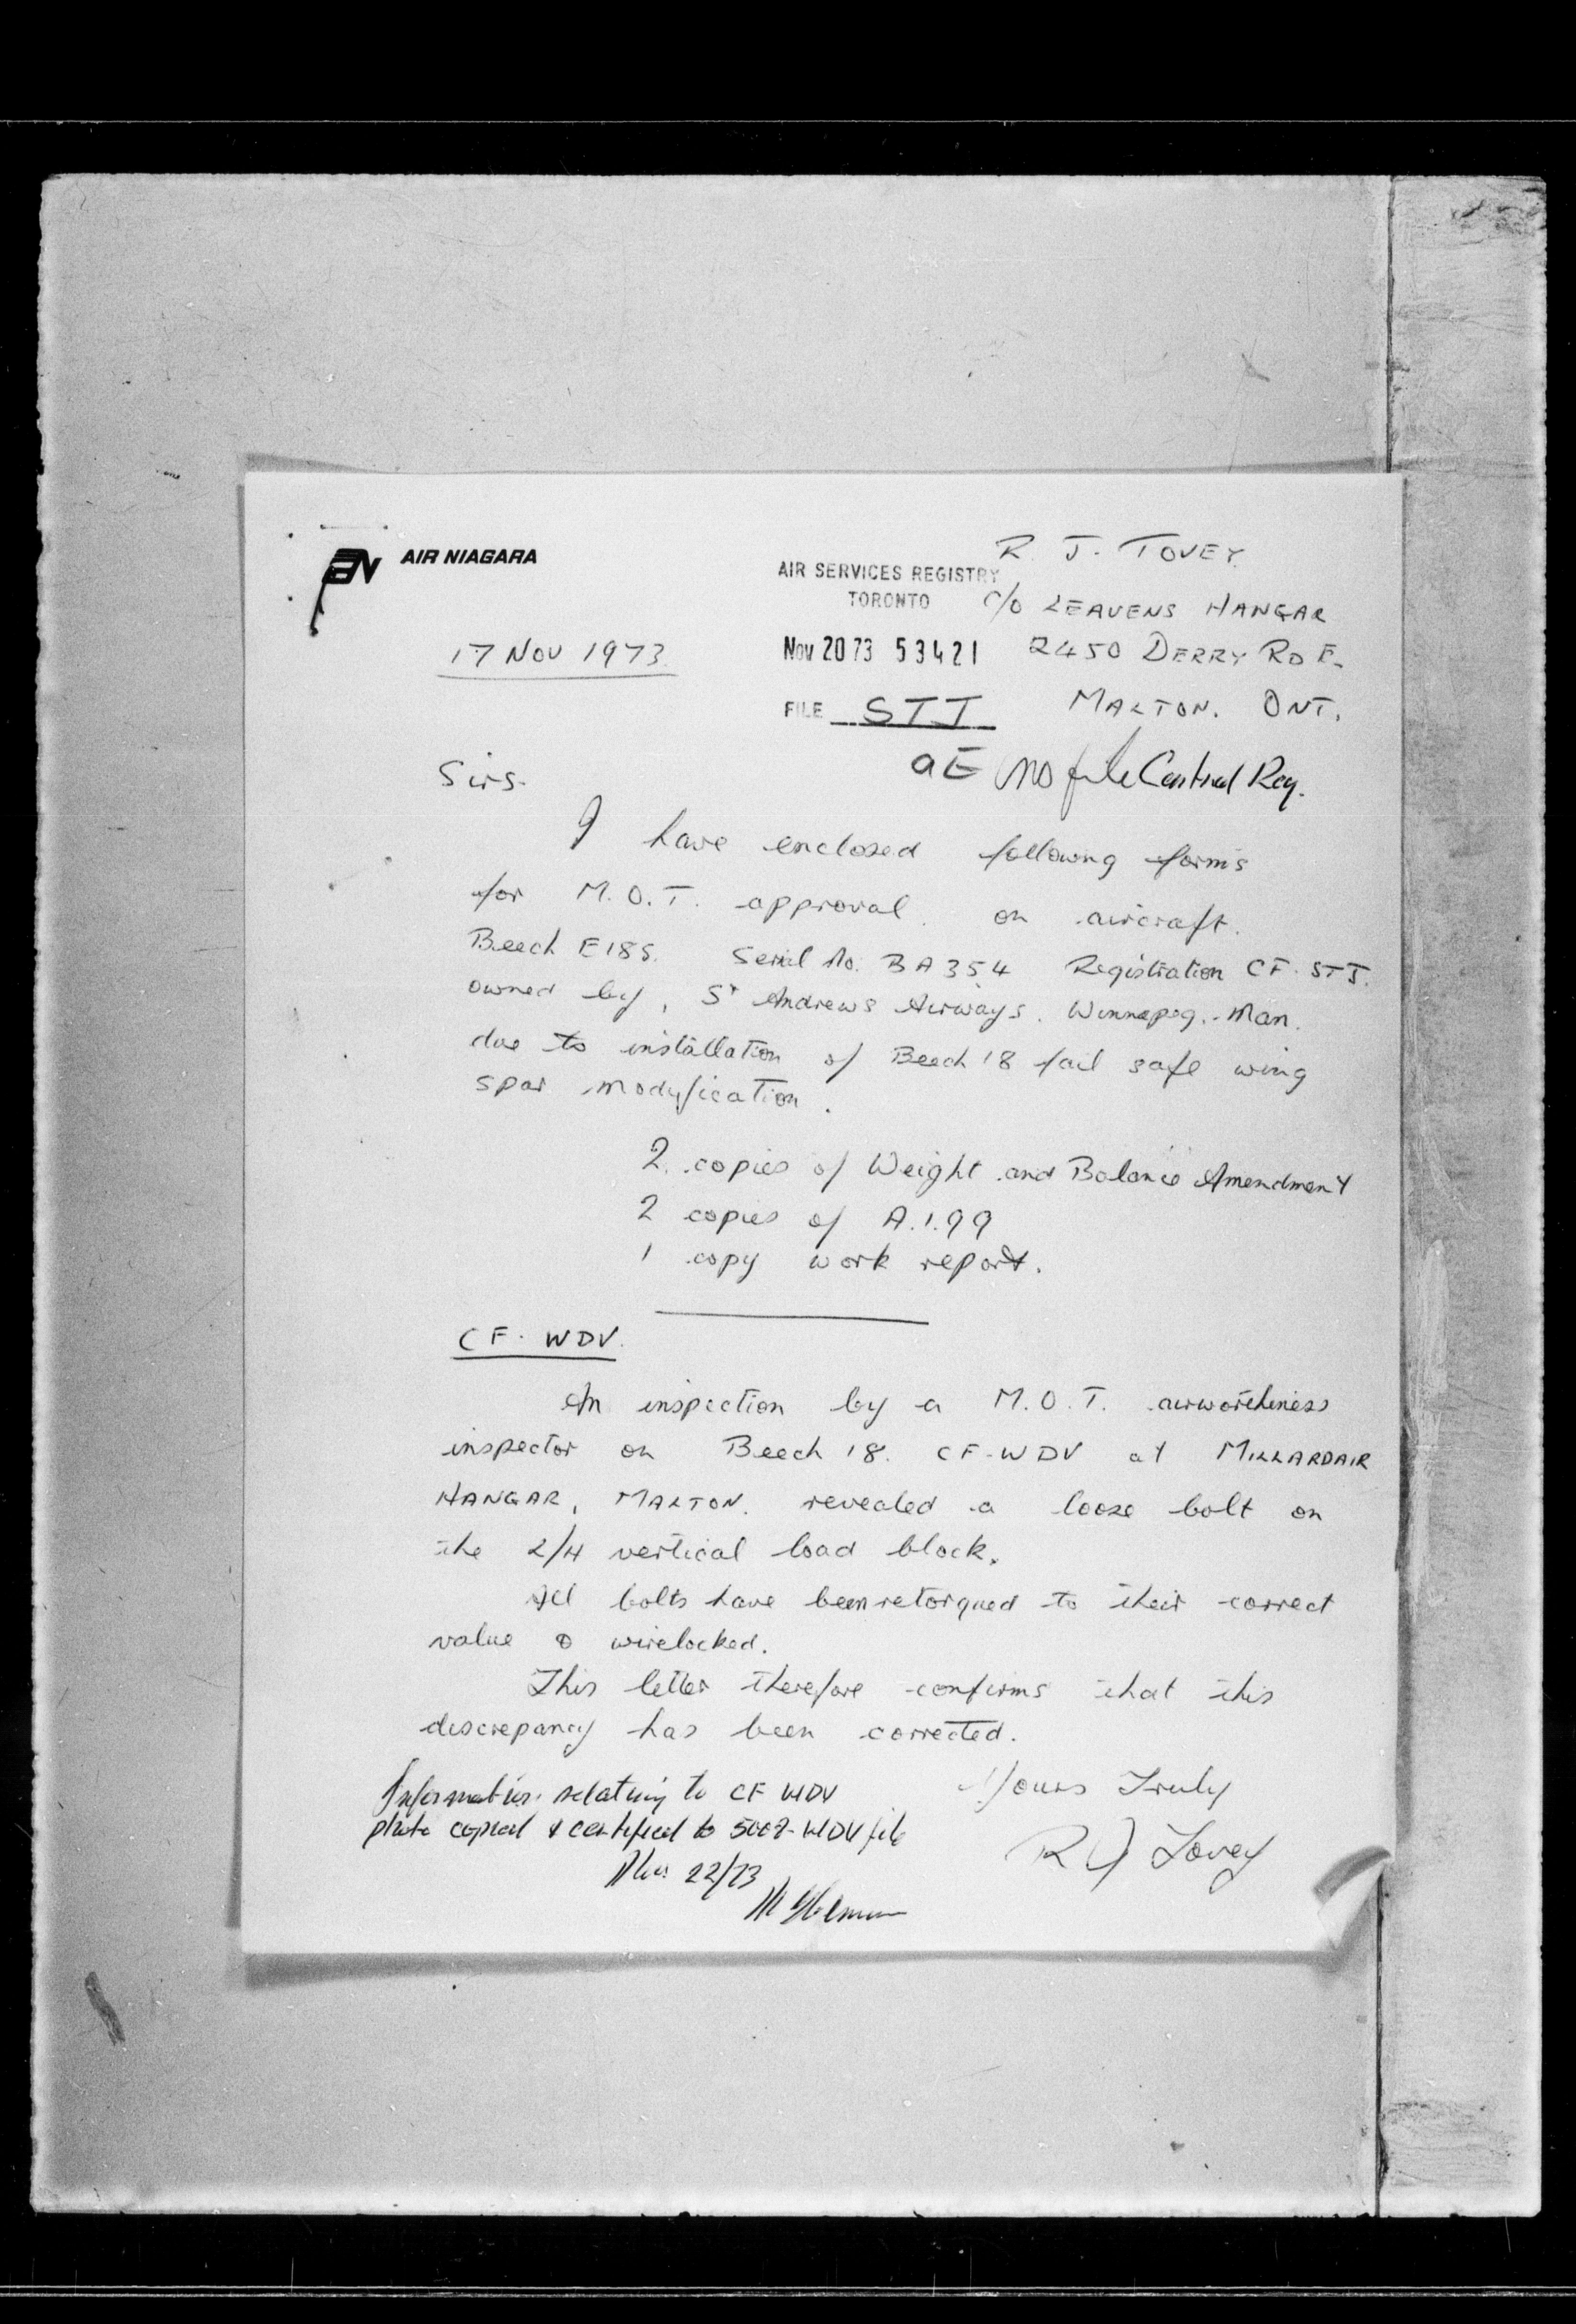 AIR NIAGARA
R. J. TOVEY.
AIR SERVICES REGISTRY
TORONTO
C/O LEAVENS HANGAR
17 NOV 1973.
Nov 20 73 53421
2450 DERRY RD E.
FILE STJ
MALTON. ONT.
aE no file Central Reg.
Sirs.
I have enclosed following forms
for M.O.T. approval. on aircraft.
Beech E18S. Serial No. BA354 Registration CF-STJ.
owned by, St Andrews Airways. Winnapeg. Man.
due to installation of Beech 18 fail safe wing
spar modyfication.
2. copies of Weight and Balance Amendment
2 copies of A.I.99
1 copy work report.
CF-WDV.
An inspection by a M.O.T. airworthiness
inspector on Beech 18. CF-WDV at MILLARDAIR
HANGAR, MALTON. revealed a loose bolt on
the L/H vertical load block.
All bolts have been retorqued to their correct
value & wirelocked.
This letter therefore confirms that this
discrepancy has been corrected.
Information relating to CF WDV
photo copied & certified to 5008-WDV file
Nov 22/73
Yours Truly
R J Tovey